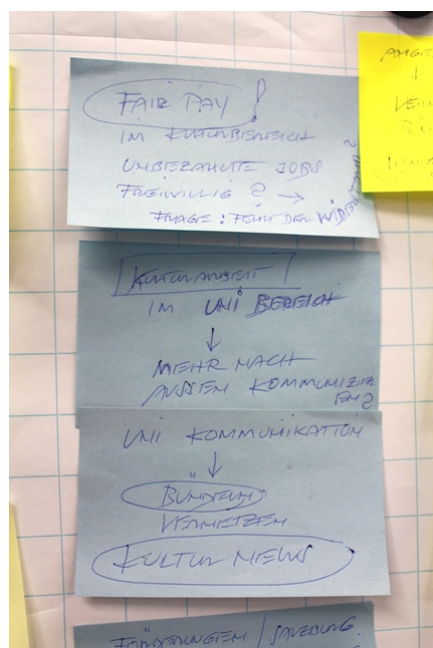 FAIR PAY!
IM KULTURBEREICH
UNBEZAHLTE JOBS
FREIWILLIG? →
FRAGE: FEHLT DER WIDERSTAND?
KULTURARBEIT
IM UNI BEREICH
↓
MEHR NACH
AUSSEN KOMMUNIZIER
EN?
UNI KOMMUNIKATION
↓
BÜNDELN
VERNETZEN
KULTUR NEWS
FÖRDERUNGEN / SALZBURG